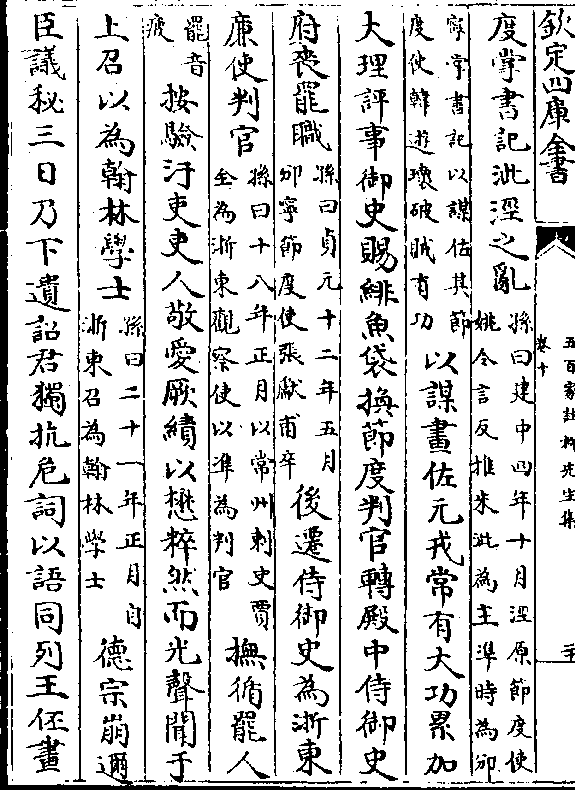 欽定四庫全書
五百家註柳先生集
卷十
二十
度掌書記泚涇之亂
孫曰建中四年十月涇原節度使
姚令言反推朱泚為主準時為邠
寧掌書記以謀佐其節
度使韓遊瓌破賊有功
以謀畫佐元戎常有大功累加
大理評事御史賜緋魚袋換節度判官轉殿中侍御史
府喪罷職
孫曰貞元十二年五月
邠寧節度使張獻甫卒
後遷侍御史為浙東
廉使判官
孫曰十八年正月以常州刺史賈
全為浙東觀察使以準為判官
撫循罷人
罷音
疲
按驗汙吏吏人敬愛厥績以懋粹然而光聲聞于
上召以為翰林學士
孫曰二十一年正月自
浙東召為翰林學士
德宗崩邇
臣議秘三日乃下遺詔君獨抗危詞以語同列王伾畫